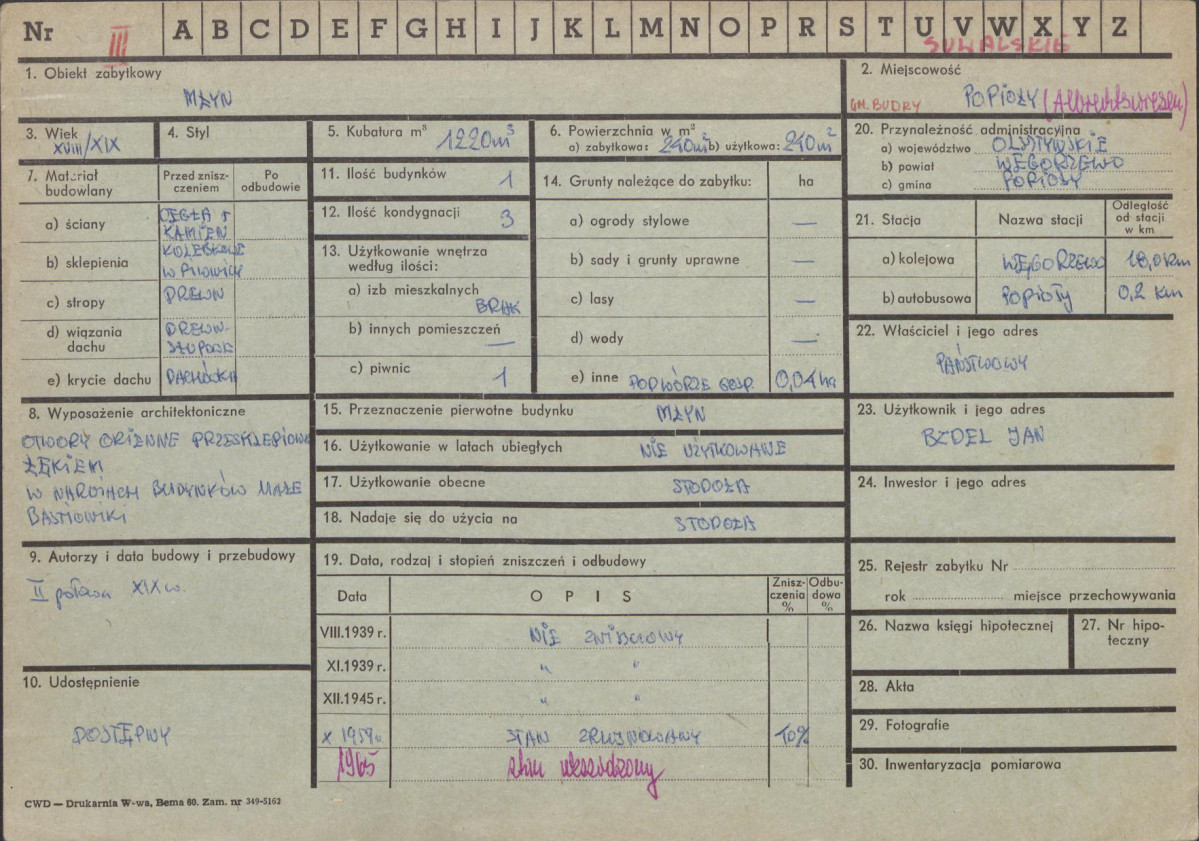 Nr III A B C D E F G H I J K L M N O P R S T U V W X Y Z
SUWALSKIE
1. Obiekt zabytkowy
MŁYN
2. Miejscowość
GM. BUDRY POPIOŁY
3. Wiek
XVIII/XIX
4. Styl
5. Kubatura m³
1220m³
6. Powierzchnia w m²
a) zabytkowa: 240m² b) użytkowa: 240m²
20. Przynależność administracyjna
a) województwo OLSZTYŃSKIE
b) powiat WĘGORZEWO
c) gmina POPIOŁY
7. Materiał budowlany
Przed zniszczeniem
Po odbudowie
a) ściany CEGŁA + KAMIEŃ
b) sklepienia KOLEBKOWE W PIWNICY
c) stropy DREWN
d) wiązania dachu DREWN. SŁUPOWE
e) krycie dachu DACHÓWKA
11. Ilość budynków 1
12. Ilość kondygnacji 3
13. Użytkowanie wnętrza według ilości:
a) izb mieszkalnych BRAK
b) innych pomieszczeń —
c) piwnic 1
14. Grunty należące do zabytku: ha
a) ogrody stylowe —
b) sady i grunty uprawne —
c) lasy —
d) wody —
e) inne PODWÓRZE GOSP. 0,04 ha
21. Stacja
Nazwa stacji
Odległość od stacji w km
a) kolejowa WĘGORZEWO 18,0 km
b) autobusowa POPIOŁY 0,2 km
22. Właściciel i jego adres
PAŃSTWOWY
8. Wyposażenie architektoniczne
OTWORY OKIENNE PRZESKLEPIONE
ŁĘKIEM
W NAROŻACH BUDYNKÓW MAŁE
BASTIONIKI
15. Przeznaczenie pierwotne budynku MŁYN
16. Użytkowanie w latach ubiegłych NIE UŻYTKOWANE
17. Użytkowanie obecne STODOŁA
18. Nadaje się do użycia na STODOŁA
23. Użytkownik i jego adres
BZDEL JAN
24. Inwestor i jego adres
9. Autorzy i data budowy i przebudowy
II połowa XIX w.
10. Udostępnienie
DOSTĘPNY
19. Data, rodzaj i stopień zniszczeń i odbudowy
Data
OPIS
Zniszczenia %
Odbudowa %
VIII.1939 r. NIE ZNISZCZONY
XI.1939 r. " "
XII.1945 r. " "
X 1959r. STAN ZRUJNOWANY 70%
1965 stan uszkodzony
25. Rejestr zabytku Nr
rok miejsce przechowywania
26. Nazwa księgi hipotecznej
27. Nr hipoteczny
28. Akta
29. Fotografie
30. Inwentaryzacja pomiarowa
CWD — Drukarnia W-wa, Bema 60. Zam. nr 349-5162